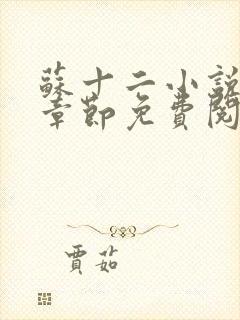 蘇十二小說
章節免費閱
賈茹